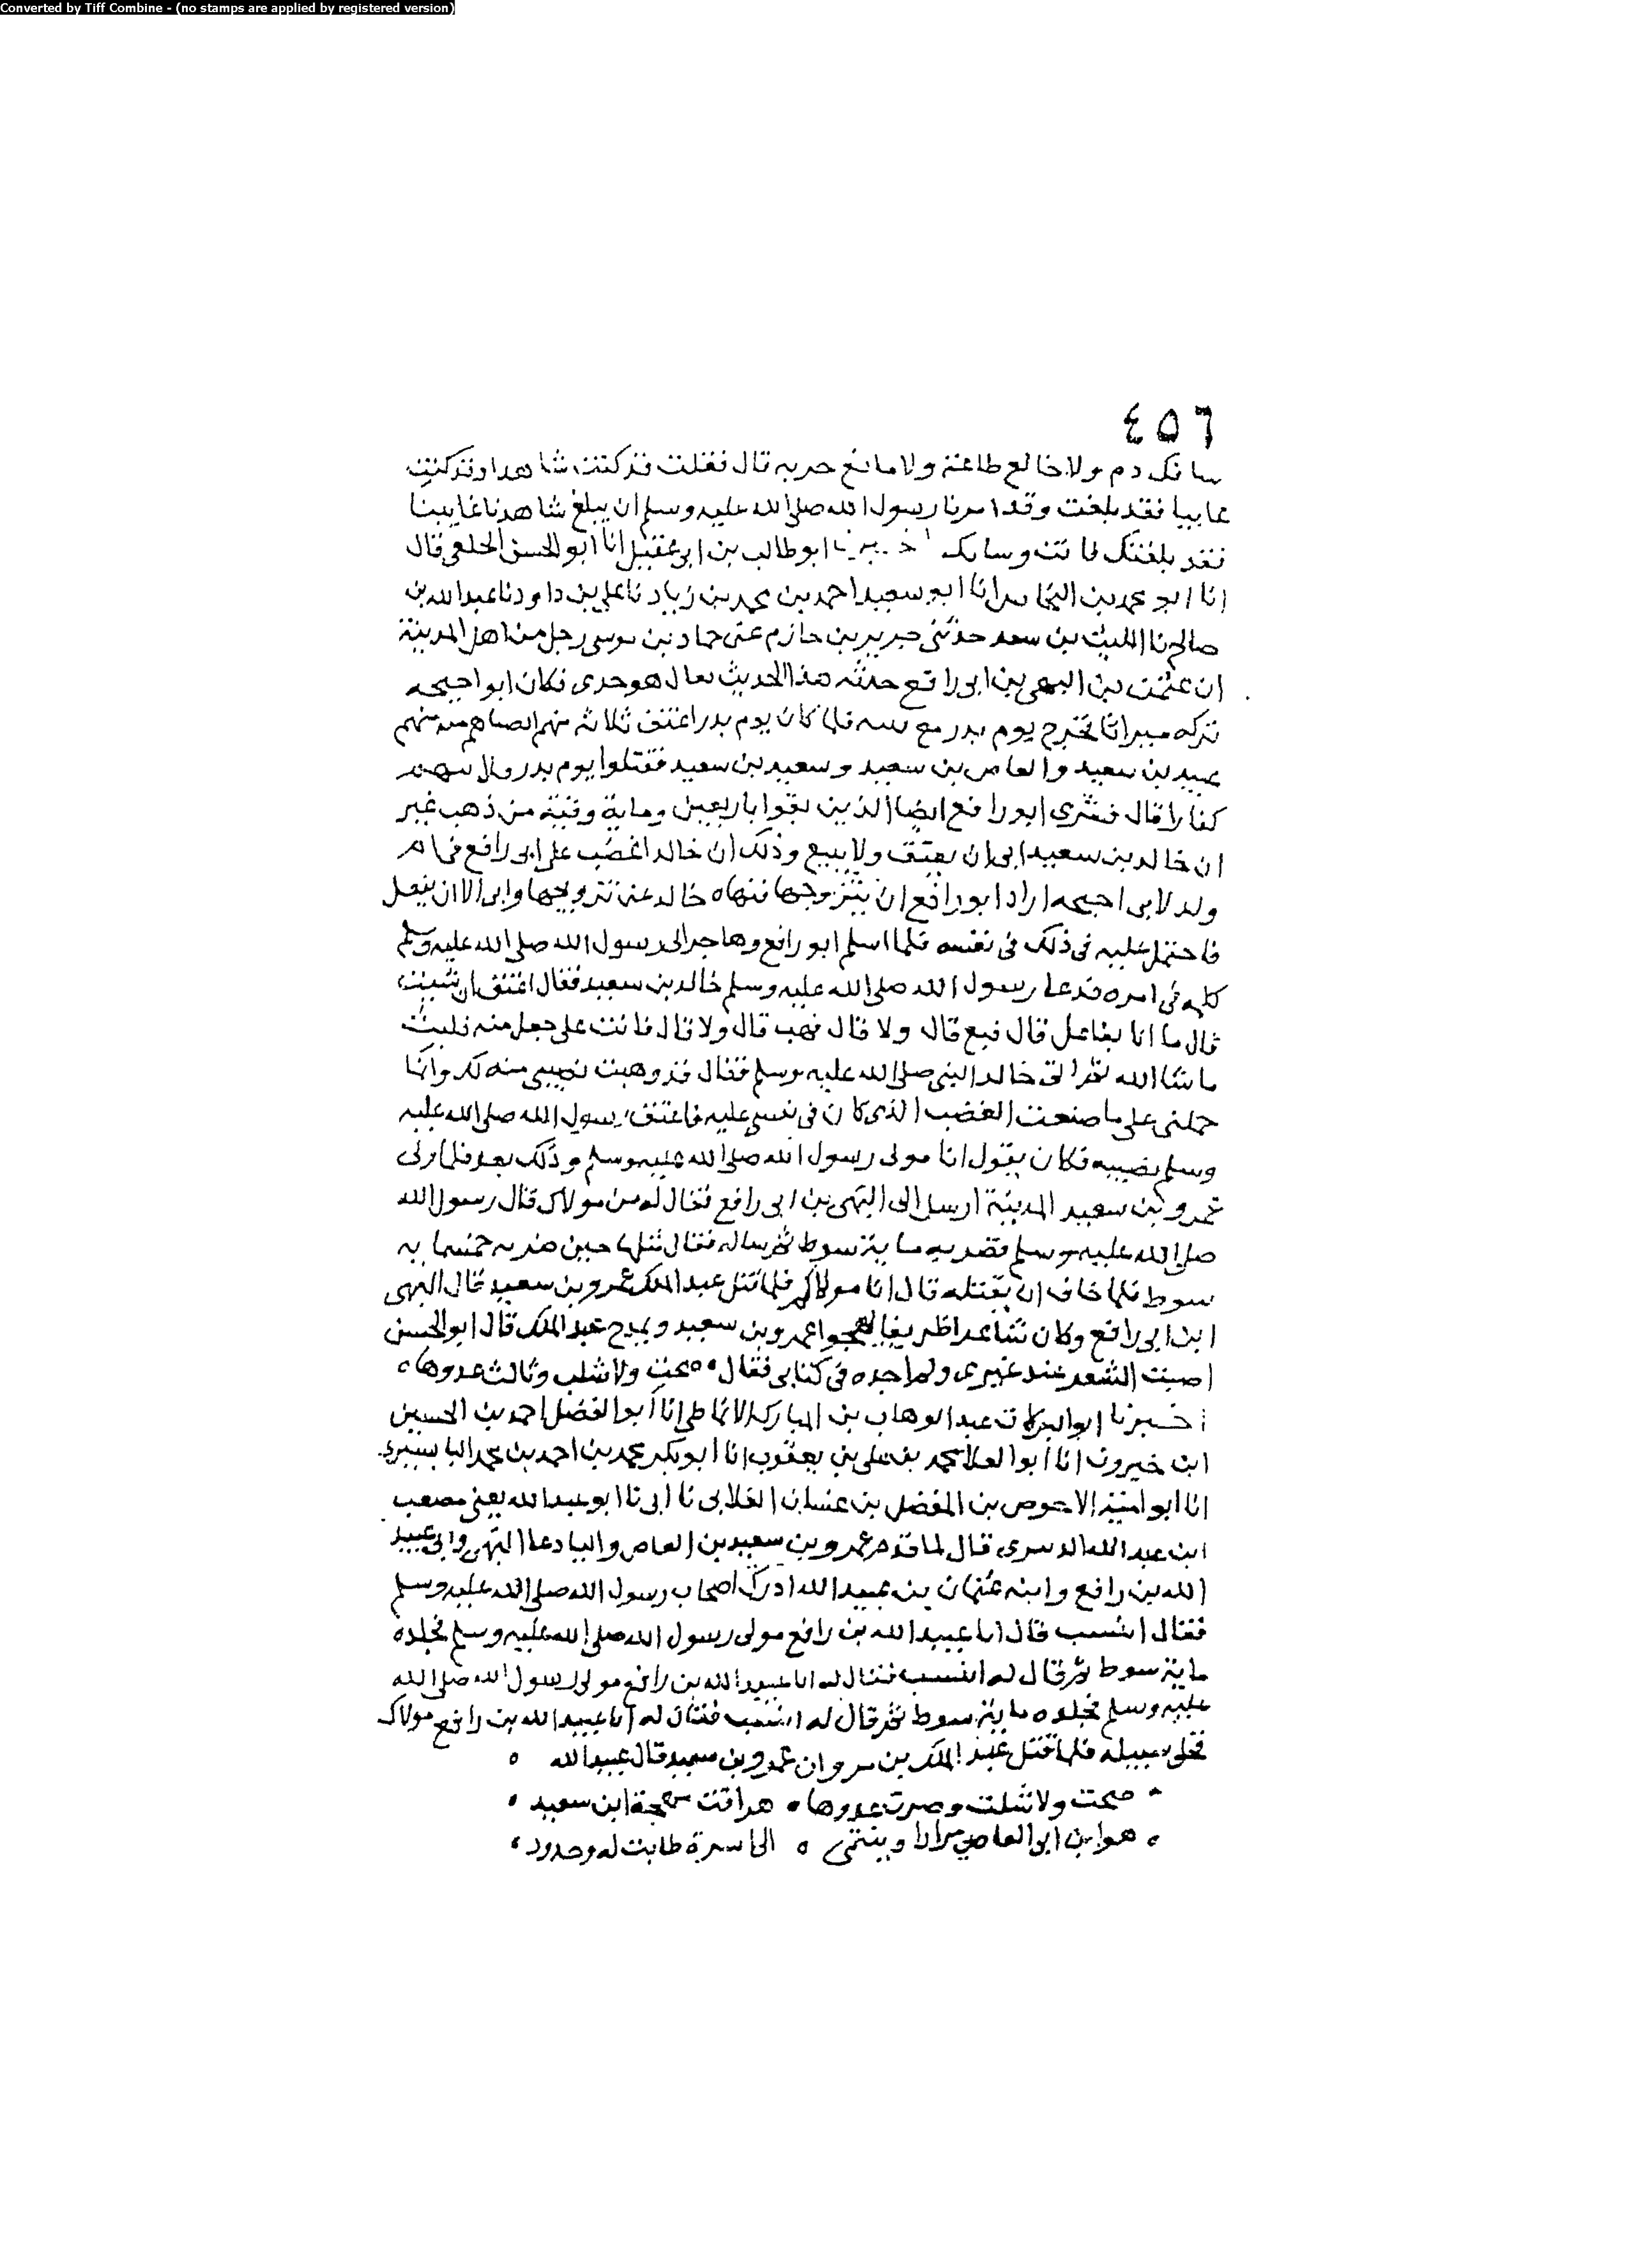 Converted by Tiff Combine - (no stamps are applied by registered version)
٤٥٦
سافك دم ولا خالع طاعة ولا مانع حربه قال فقلت قد كنت شاهدا وقد كنت
غايبا فقد بلغت وقد امرنا رسول الله صلى الله عليه وسلم ان يبلغ شاهدنا غايبنا
فقد بلغتك فانت وشانك ابو طالب بن ابي عقيل انا ابو الحسن الخلعي قال
انا ابو محمد بن النحاس انا ابو سعيد احمد بن محمد بن زياد نا علي بن داود نا عبد الله بن
صالح نا الليث بن سعد حدثني جرير بن حازم عن حماد بن موسى رجل من اهل المدينة
ان عثمن بن البهي بن ابي رافع حدثه هذا الحديث قال هو حدى فكان ابو احيحه
تركه ميراثا فخرج يوم بدر مع فلما كان يوم بدر اعتق ثلاثة منهم انصباهم منه منهم
عبيد بن سعيد والعاص بن سعيد وسعيد بن سعيد فقتلوا يوم بدر
كفارا قال فشرى ابو رافع ايضا الذين بقوا باربعين وماية وقية من ذهب غير
ان خالد بن سعيد ابى ان يعتق ولا يبيع وذلك ان خالدا غضب على ابي رافع في ام
ولد لابي احيحه اراد ابو رافع ان يتزوجها فنهاه خالد عن تزويجها وابى الا ان يفعل
فاحتمل عليه في ذلك في نفسه فلما اسلم ابو رافع وهاجر الى رسول الله صلى الله عليه وسلم
كلمه في امره فدعا رسول الله صلى الله عليه وسلم خالد بن سعيد فقال اعتق ان شيت
قال ما انا بفاعل قال فبع قال ولا قال فهب قال ولا قال فانت على جعل منه فلبث
ما شا الله ثم اتى خالد النبي صلى الله عليه وسلم فقال قد وهبت نصيبي منه لك وانما
حملني على ما صنعت الغضب الذي كان في نفسي عليه فاعتق رسول الله صلى الله عليه
وسلم نصيبه فكان يقول انا مولى رسول الله صلى الله عليه وسلم وذلك بعد فلما ولى
عمرو بن سعيد المدينة ارسل الى البهي بن ابي رافع فقال له من مولاك قال رسول الله
صلى الله عليه وسلم فضربه ماية سوط ثم ساله فقال مثلها حين ضربه خمسماية
سوط فلما خاف ان يقتله قال انا مولاكم فلما قتل عبد الملك عمرو بن سعيد قال البهي
ابن ابي رافع وكان شاعرا ظريفا يهجوا عمرو بن سعيد ويمدح عبد الملك قال ابو الحسن
اصبت الشعر عند غيري ولم اجده في كتابي فقال صحت ولا شلت وثالث عدوها
اخبرنا ابو البركات عبد الوهاب بن المبارك الانماطي انا ابو الفضل احمد بن الحسين
ابن خيرون انا ابو العلا محمد بن علي بن يعقوب انا ابو بكر محمد بن احمد بن محمد البابسيري
انا ابو امية الاحوص بن المفضل بن غسان الغلابي نا ابي نا ابو عبد الله يعني مصعب
ابن عبد الله قال لما قدم عمرو بن سعيد بن العاص واليا دعا البهي وابي عبيد
الله بن رافع وابنه عثمان بن عبيد الله ادرك اصحاب رسول الله صلى الله عليه وسلم
فقال انتسب قال انا عبيد الله بن رافع مولى رسول الله صلى الله عليه وسلم فجلده
ماية سوط ثم قال له انتسب فقال له انا عبيد الله بن رافع مولى رسول الله صلى الله
عليه وسلم فجلده ماية سوط ثم قال له انتسب فقال له انا عبيد الله بن رافع مولاك
فخلى سبيله فلما قتل عبد الملك بن مروان عمرو بن سعيد قال عبيد الله
صحت ولا شلت وضرت عدوها هراقت مهجة ابن سعيد
هو ابن ابي العاصي مرارا وينتمي الى اسرة طابت له وجدود